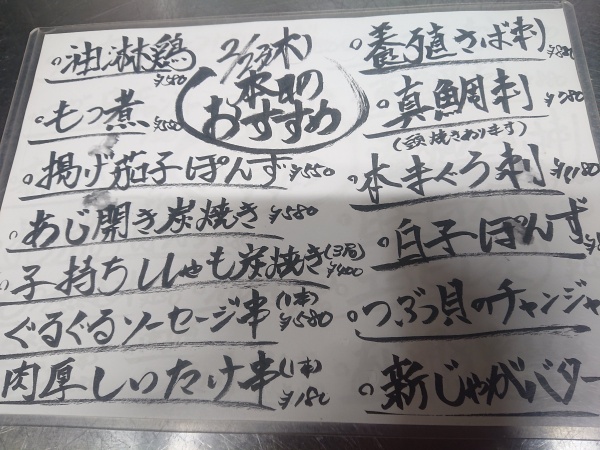 2/23(木)
本日の
おすすめ
油淋鶏 ¥580
もつ煮 ¥550
揚げ茄子ぽんず ¥550
あじ開き炭焼き ¥580
子持ちししゃも炭焼き(3尾) ¥400
ぐるぐるソーセージ串(1本) ¥580
肉厚しいたけ串(1本) ¥180
養殖さば刺
真鯛刺 ¥980
焼きあります)
本まぐろ刺 ¥1180
白子ぽんず
つぶ貝のチャンジャ
新じゃがバター